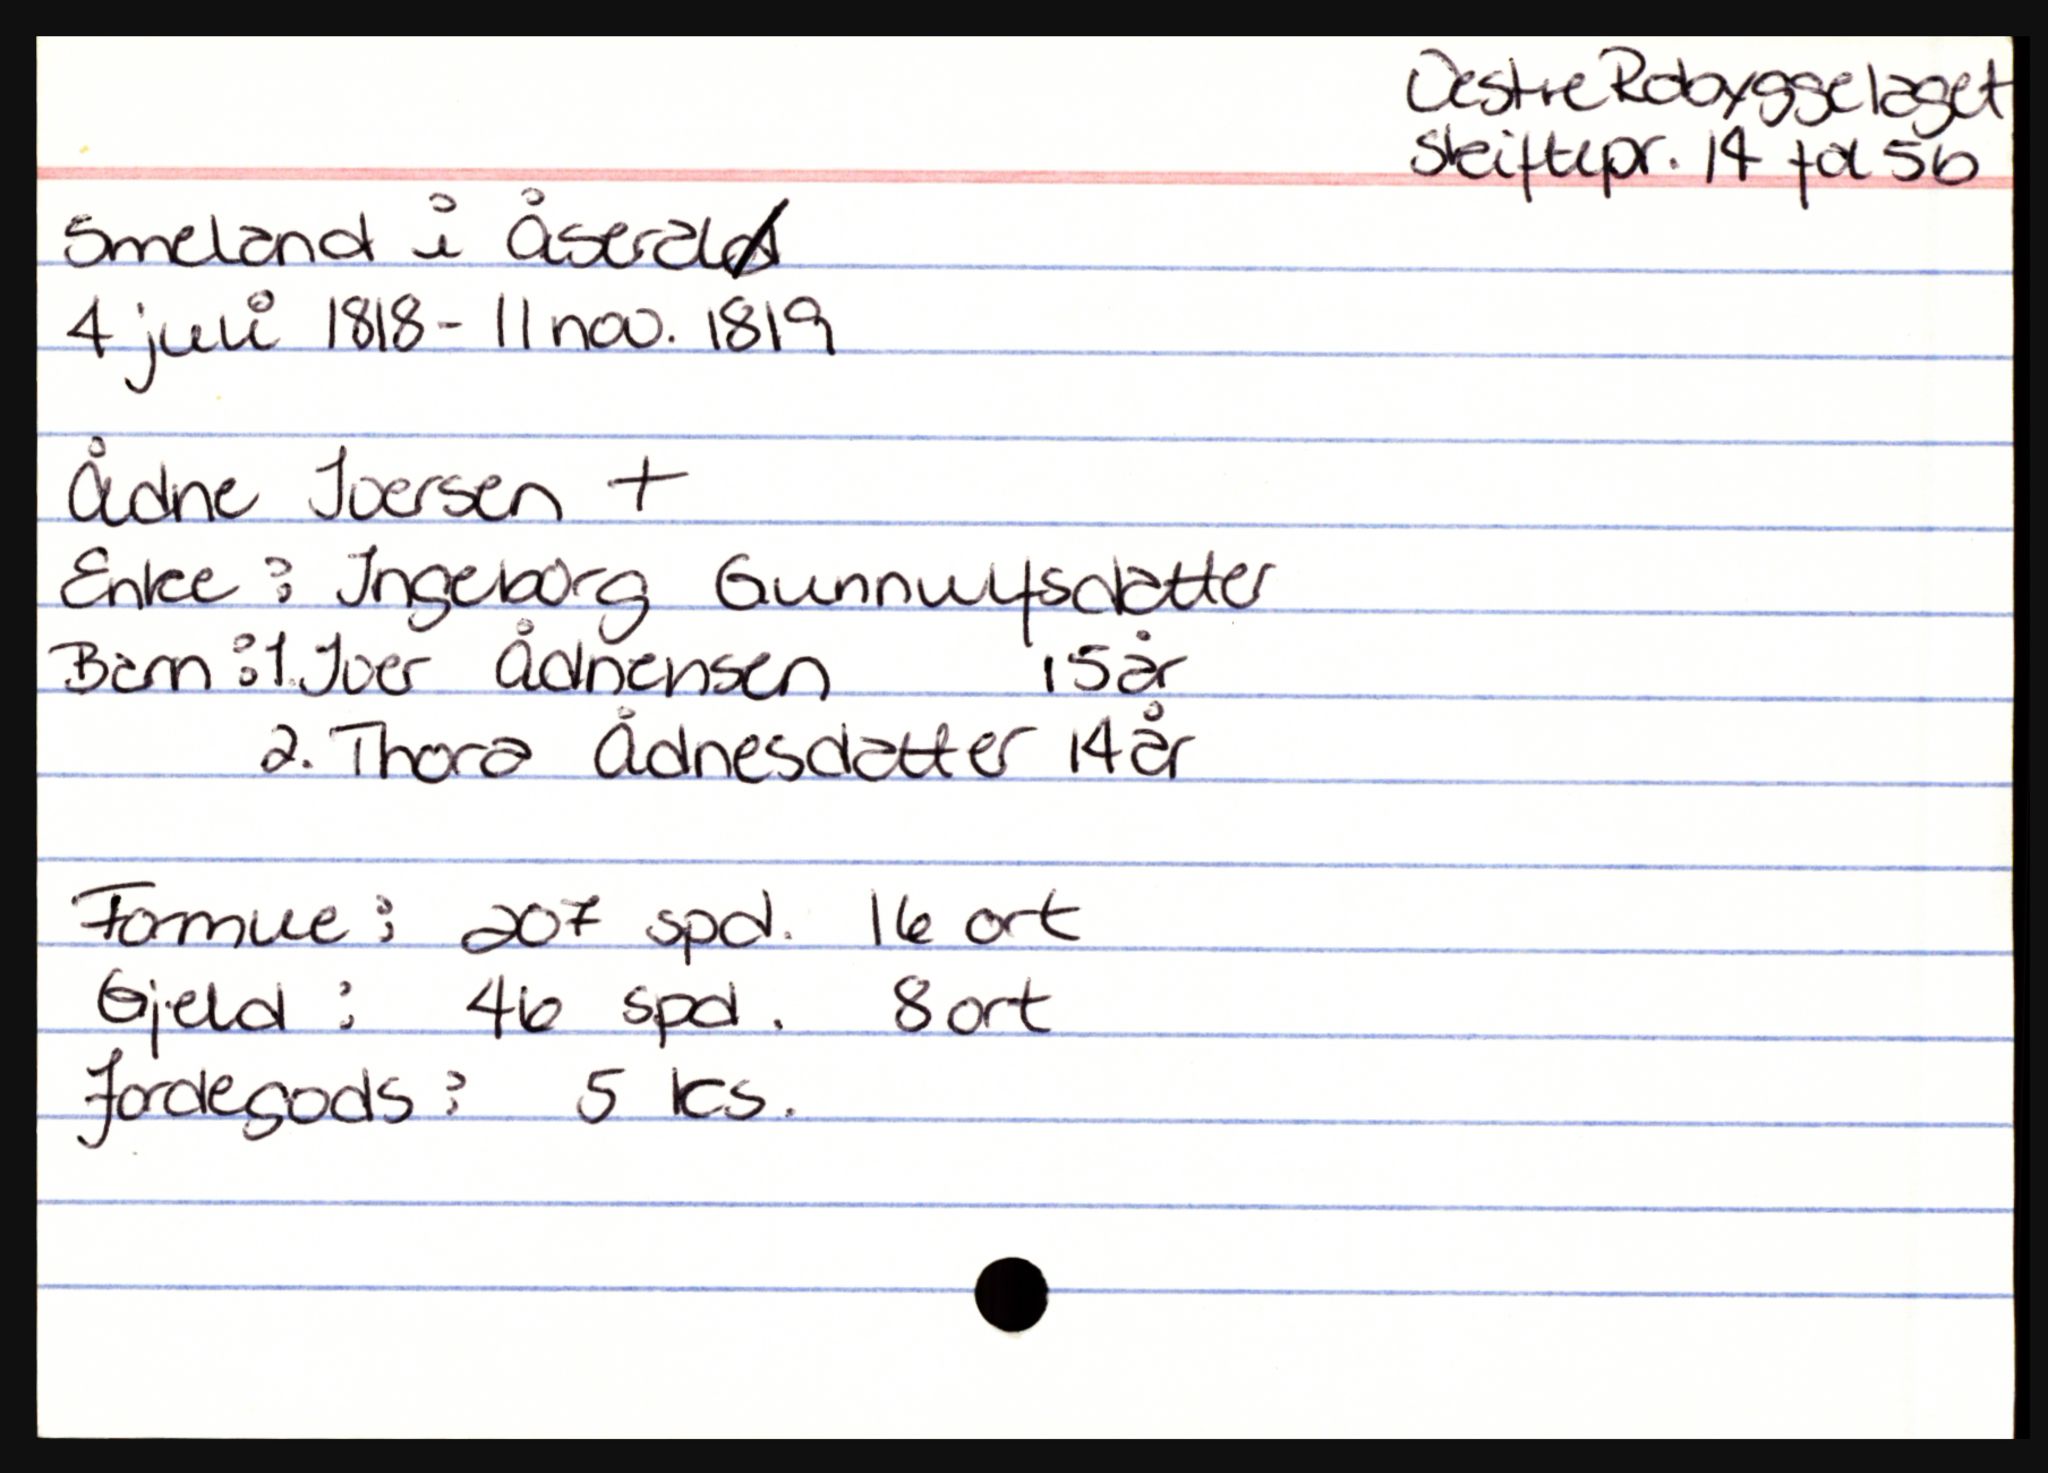 Vestre Robyggelaget
Skiftepr. 14 fol 56
Smeland i Åseral
4 juli 1818 - 11 nov. 1819
Ådne Iversen +
Enke : Ingeborg Gunnulfsdatter
Barn : 1. Iver Ådnensen 15 år
2. Thora Ådnesdatter 14 år
Formue : 207 spd. 16 ort
Gjeld : 46 spd. 8 ort
Jordegods : 5 ks.